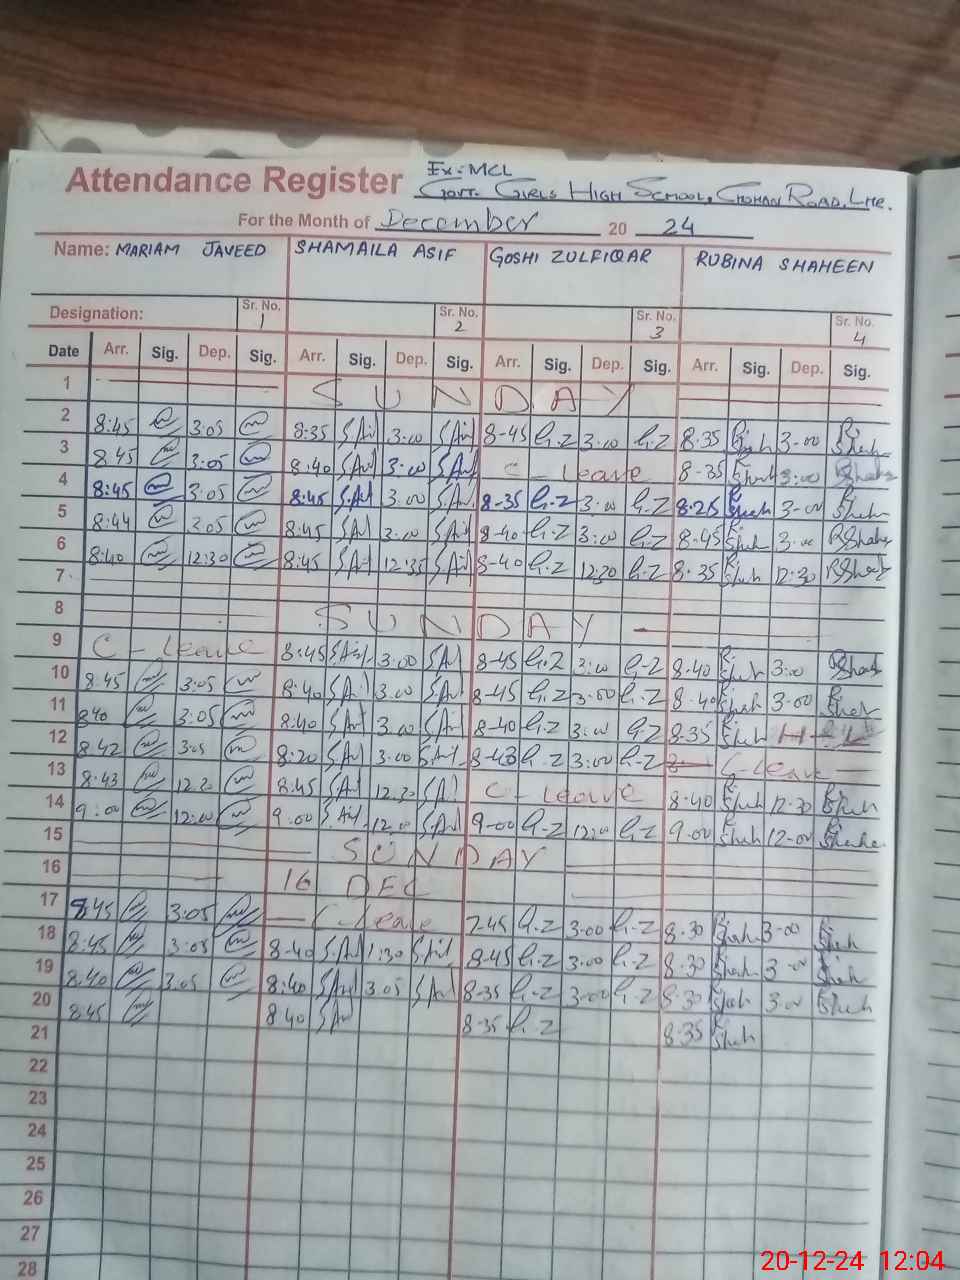 Ex: MCL
Attendance Register Govt. Girls High School, Chohan Road, Lhe.
For the Month of December 20 24
Name: MARIAM JAVEED SHAMAILA ASIF GOSHI ZULFIQAR RUBINA SHAHEEN
Designation: Sr. No. 1 Sr. No. 2 Sr. No. 3 Sr. No. 4
Date Arr. Sig. Dep. Sig. Arr. Sig. Dep. Sig. Arr. Sig. Dep. Sig. Arr. Sig. Dep. Sig.
1 SUNDAY
2 8:45 3:05 8:35 3:00 8-45 G.Z 3:00 G.Z 8.35 3-00
3 8:45 3:05 8:40 3:00 C-leave 8-35 3:00
4 8:45 3:05 8:45 3:00 8-35 G.Z 3:00 G.Z 8.25 3-00
5 8:44 3:05 8:45 3:00 8-40 G.Z 3:00 G.Z 8-45 3:00
6 8:40 12:30 8:45 12:35 8-40 G.Z 12:30 G.Z 8.35 12:30
7
8 SUNDAY
9 C-leave 8:45 3:00 8-45 G.Z 3:00 G-Z 8.40 3:00
10 8:45 3:05 8:40 3:00 8-45 G.Z 3:00 G.Z 8.40 3-00
11 8:40 3:05 8:40 3:00 8-40 G.Z 3:00 G.Z 8:35
12 8:42 3:05 8:20 3:00 G.Z 3:00 G-Z C-leave
13 8:43 12:30 8:45 12:30 C-leave 8:40 12-30
14 9:00 12:00 9:00 12:00 9-00 G-Z 12:00 G.Z 9.00 12-00
15 SUNDAY
16 16 DEC
17 8:45 3:05 C-leave 7:45 G.Z 3:00 G-Z 8.30 3-00
18 8:45 3:05 8-40 1:30 8-45 G-Z 3:00 G.Z 8.30 3-00
19 8:40 3:05 8:40 3:05 8-35 G.Z 3:00 G.Z 8-30 3:00
20 8:45 8:40 8:35 G.Z 8.35
21
22
23
24
25
26
27
28
20-12-24 12:04